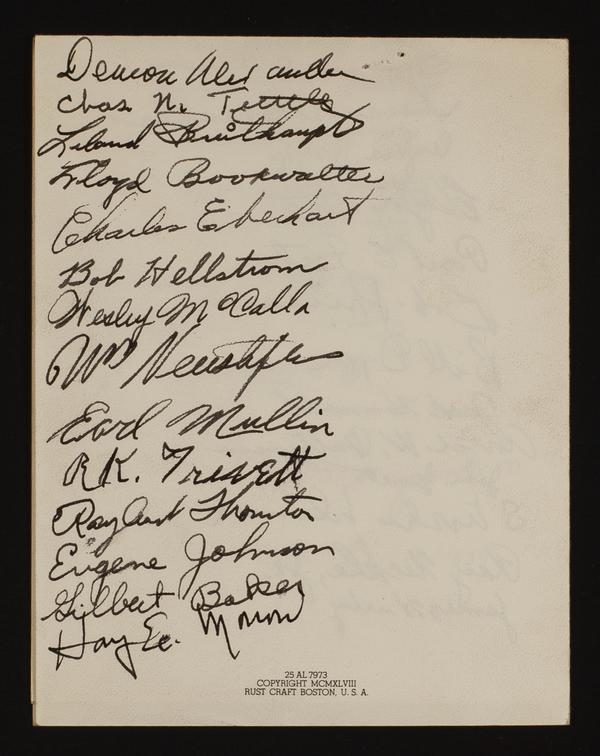 Alexander
Chas. N. Tuttle
Leland Breithaupt
Floyd Bookwalter
Charles Eberhart
Bob Hellstrom
Wesley McCalla
Wm
Earl Mullin
R.K. Trivett
Thornton
Eugene Johnson
Gilbert Baker
25 AL 7973
COPYRIGHT MCMXLVIII
RUST CRAFT BOSTON, U. S. A.